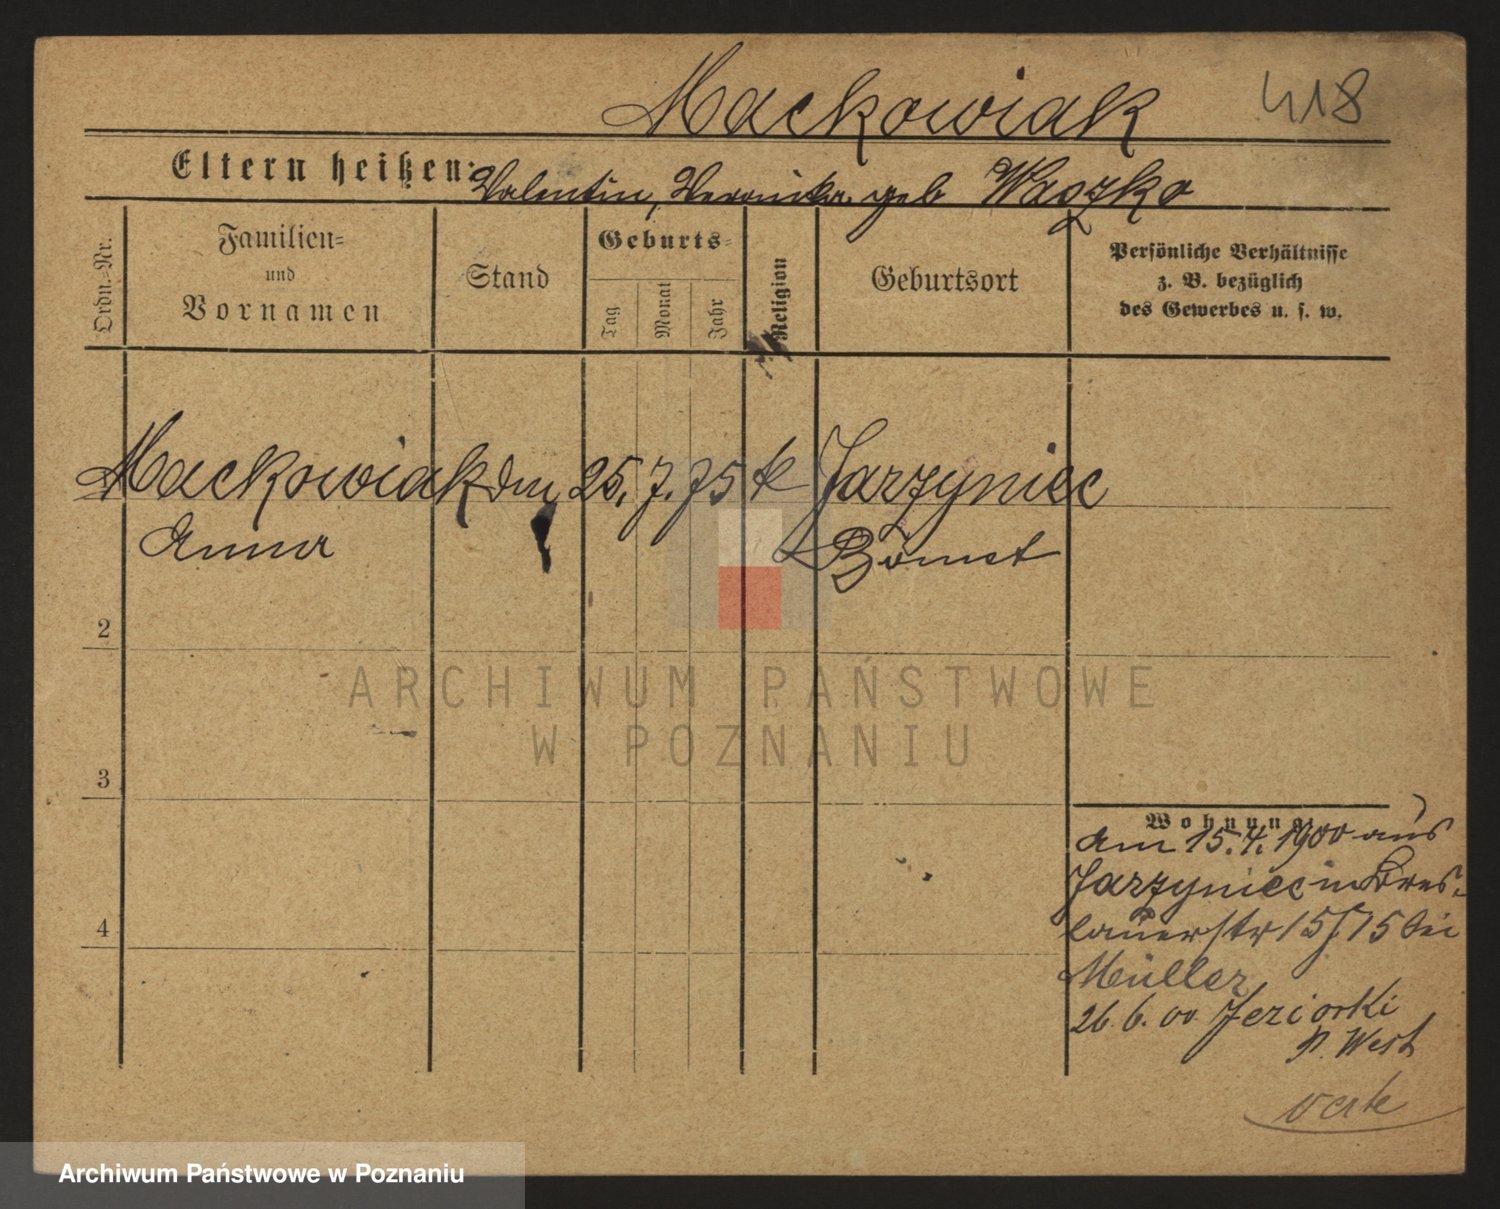 Mackowiak 418
Eltern heißen: Valentin, Veronika geb Waszko
Ordn.-Nr.
Familien- und Vornamen
Stand
Geburts-
Tag
Monat
Jahr
Religion
Geburtsort
Persönliche Verhältnisse
z. B. bezüglich
des Gewerbes u. s. w.
Mackowiak 25. 7. 75 k Jarzyniec
Anna Bomst
2
3
4
ARCHIWUM PAŃSTWOWE
W POZNANIU
Wohnung:
Am 15.4.1900 aus
Jarzyniec in Bres-
lauerstr 15/15 bei
Müller
26.6.00 Jeziorki
P. West
Archiwum Państwowe w Poznaniu